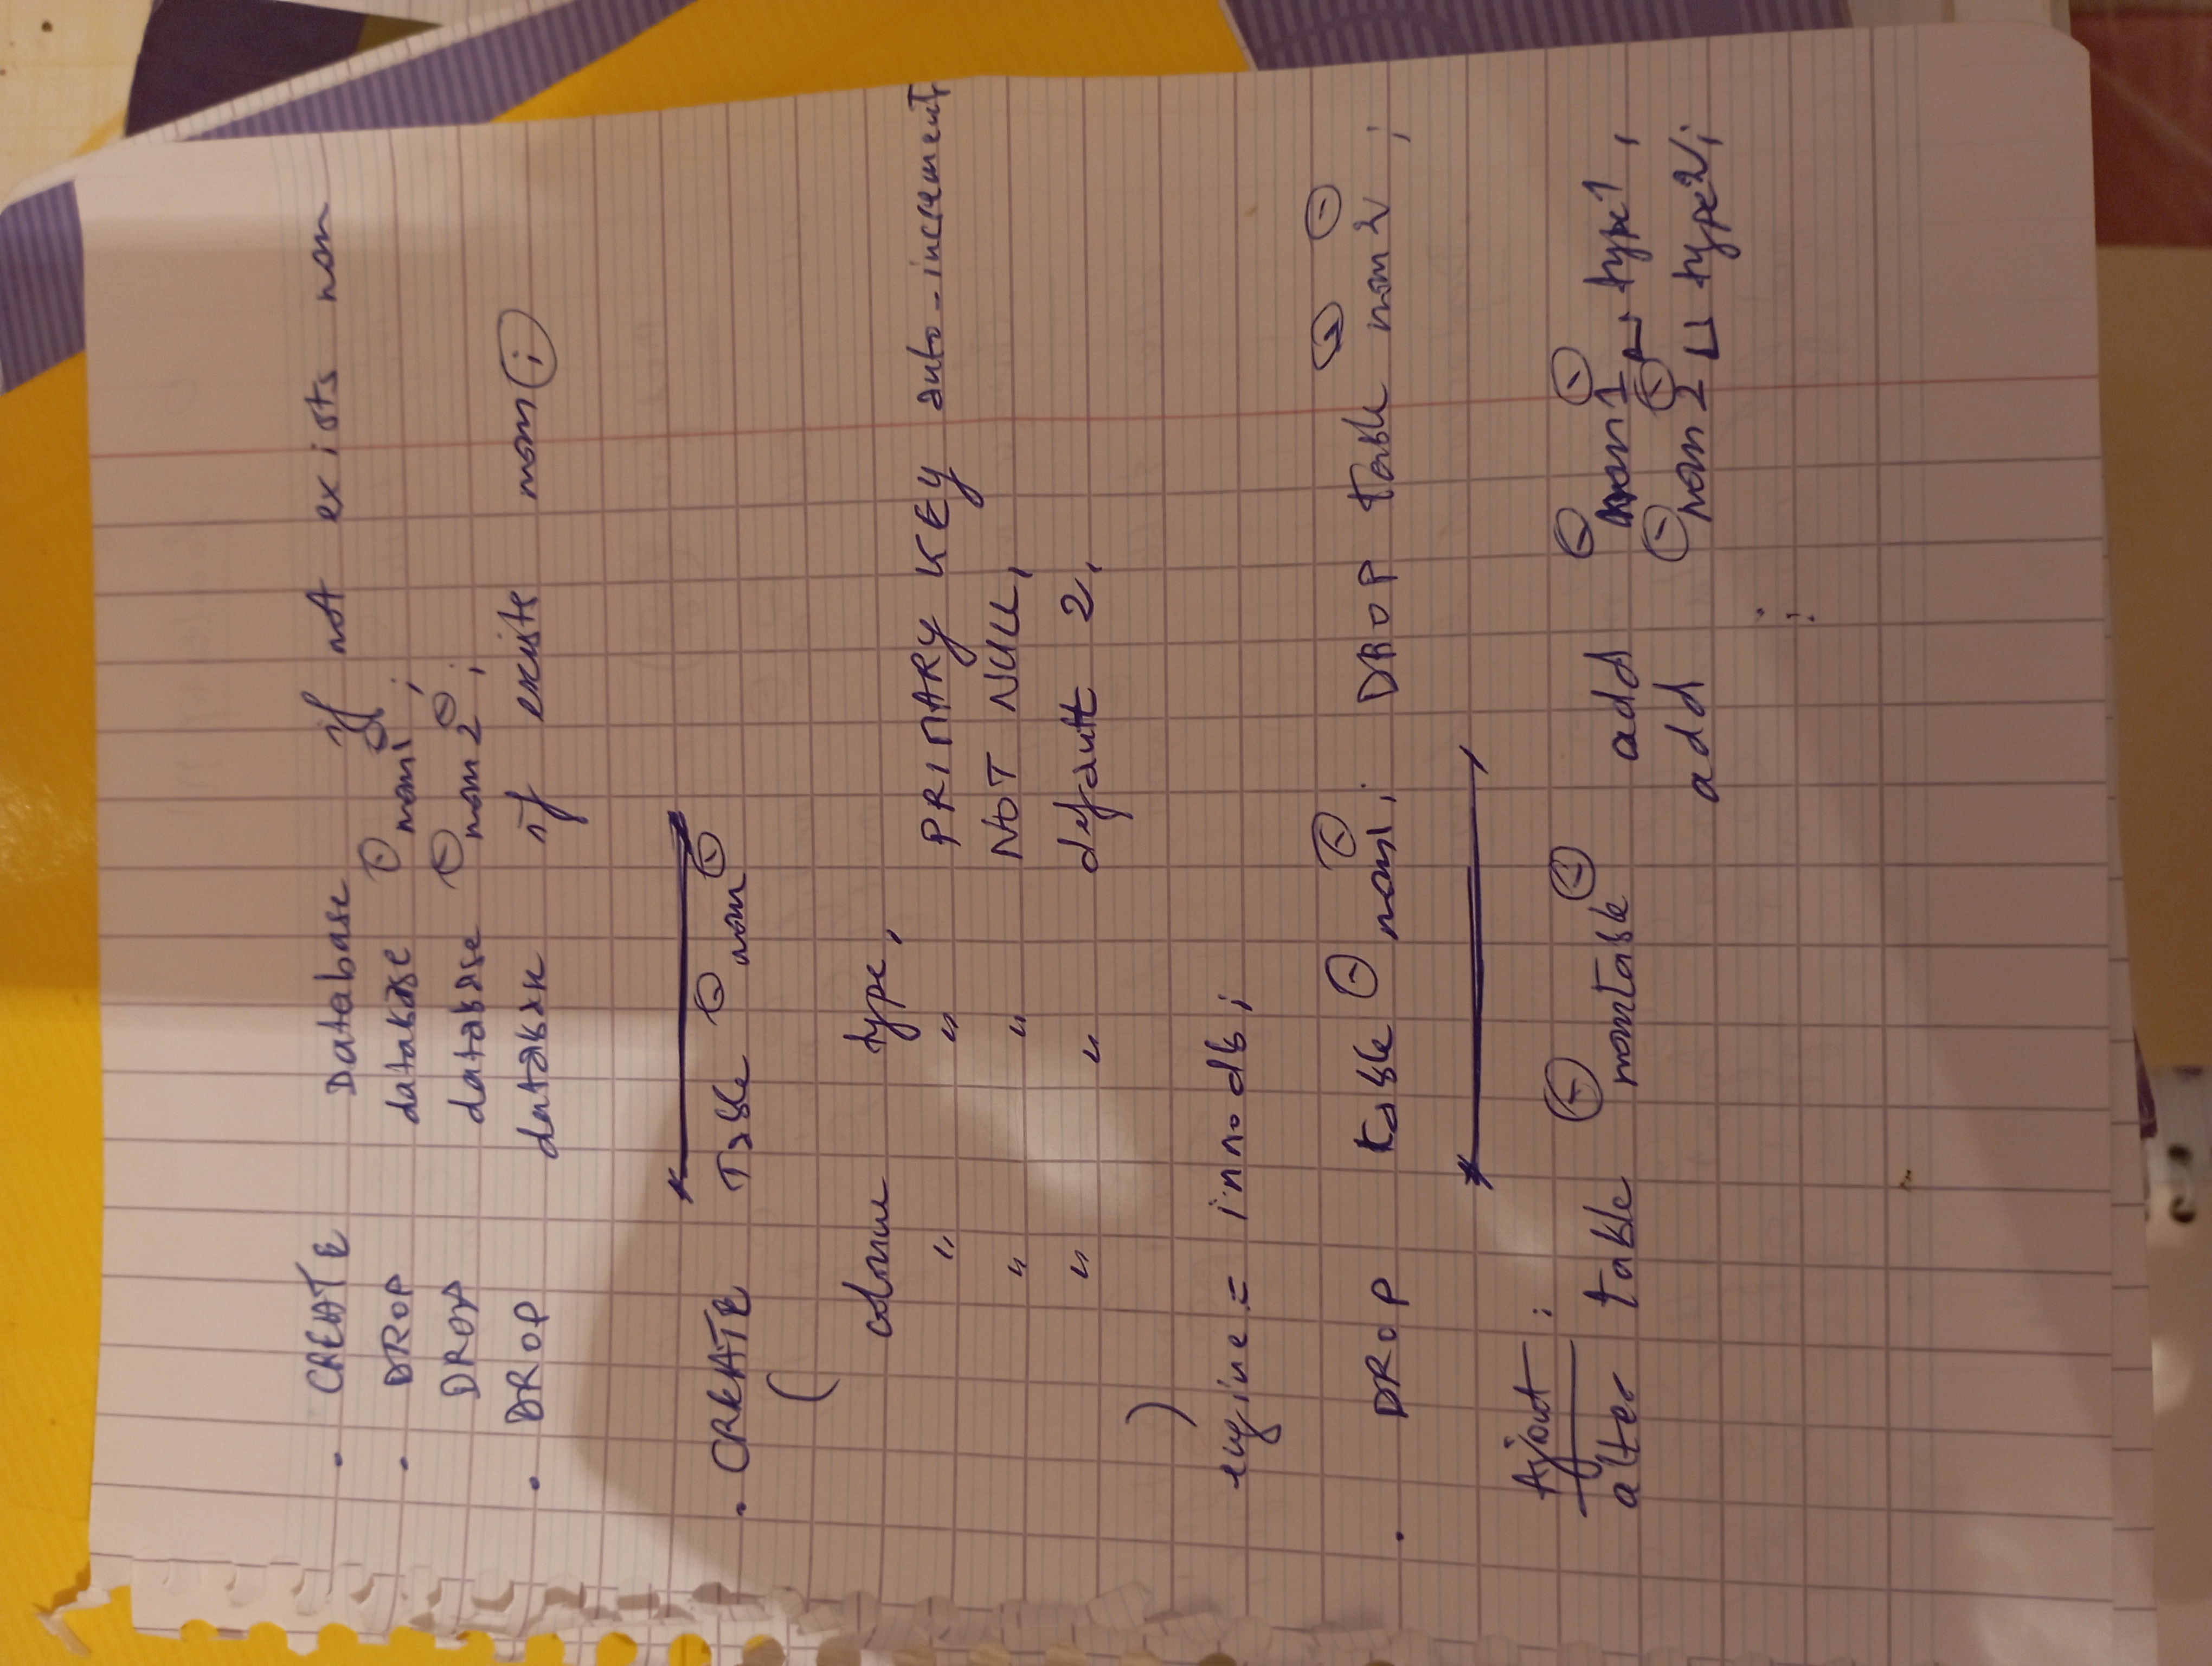 . CREATE Database if not exists nom
. DROP database `nom1` ;
DROP database `nom2` ;
. DROP database if exists nom ;
. CREATE Table `nom`
(
colonne type,
" " PRIMARY KEY auto-increment
" " NOT NULL,
" " default 2,
)
engine = innodb ;
. DROP table `nom1` ; DROP table `nom2` ;
Ajout :
alter table `nomtable` add `nom1` ␣ type1 ,
add `nom2` ␣ type2 ;
⋮